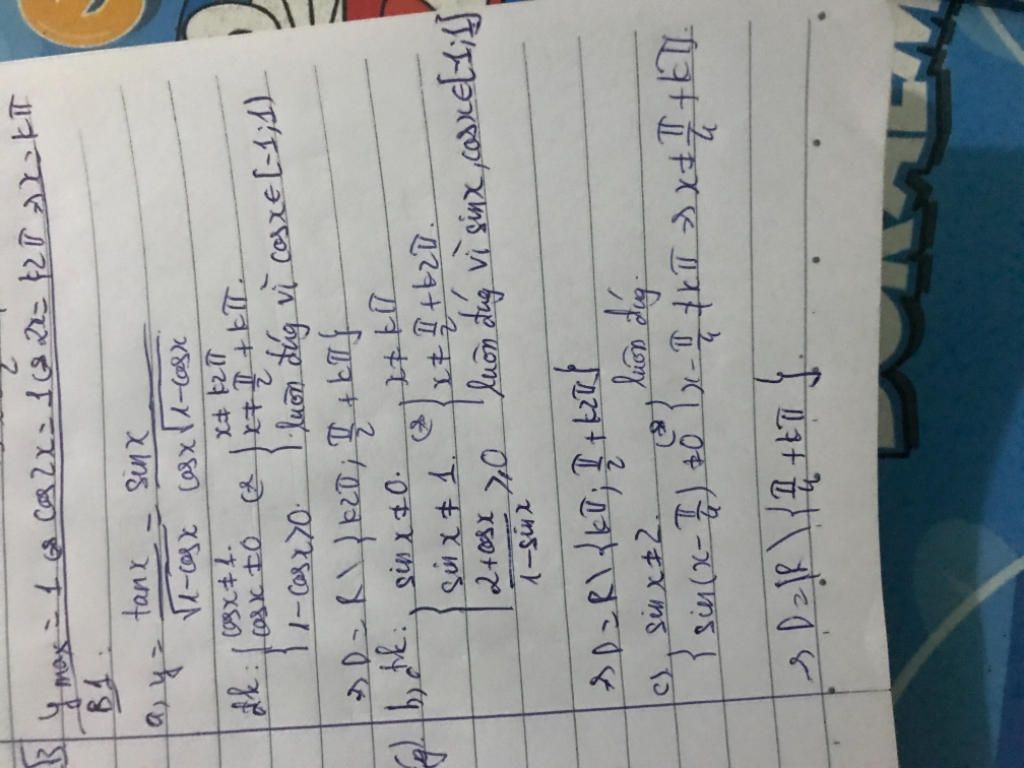 y max = 1 ⇔ cos2x = 1 ⇔ 2x = k2π => x = kπ
B1:
a, y = tanx / √(1-cosx) = sinx / cosx√(1-cosx)
đk: { cosx ≠ 1. cosx ≠ 0 1-cosx ≥ 0. ⇔ { x ≠ k2π x ≠ π/2 + kπ. luôn đúg vì cosx ∈ [-1;1)
=> D = R \ {k2π; π/2 + kπ}
b, đk: { sinx ≠ 0. sinx ≠ 1. (2+cosx)/(1-sinx) ≥ 0 ⇔ { x ≠ kπ x ≠ π/2 + k2π. luôn đúg vì sinx, cosx ∈ [-1;1]
=> D = R \ {kπ; π/2 + k2π}
c) { sinx ≠ 2. sin(x - π/4) ≠ 0 ⇔ { luôn đúg. x - π/4 ≠ kπ => x ≠ π/4 + kπ.
=> D = R \ {π/4 + kπ}.
DOREM